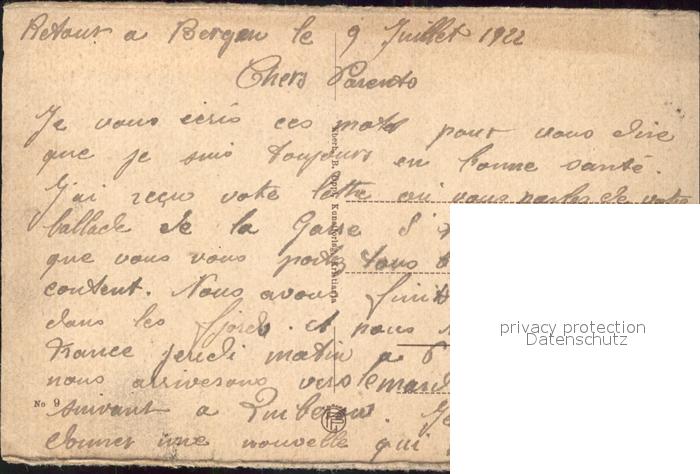 Retour a Bergen le 9 Juillet 1922
Chers Parents
Je vous ecris ces mots pour vous dire
que je suis toujours en bonne santé.
J'ai reçu vote lettre ou vous parlez de votre
ballade de la
que vous vous portez tous
content. Nous avons finit
dans les fjords. et nous
France jeudi matin a 6
nous arriverons vers le mardi
suivant a
donner une nouvelle qui
No 9
Kunstforlag, Kristiania
privacy protection
Datenschutz